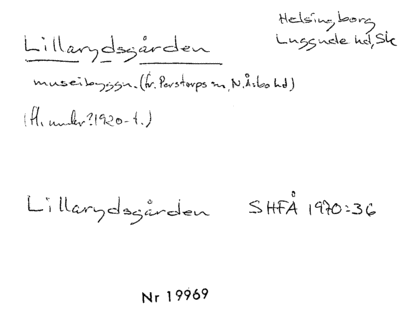 Helsingborg
Luggude hd, Sk
Lillarydsgården
museibyggn. (fr. Perstorps sn, N. Åsbo hd)
(fl. under 1920-t.)
Lillarydsgården SHFÅ 1970:36
Nr 19969